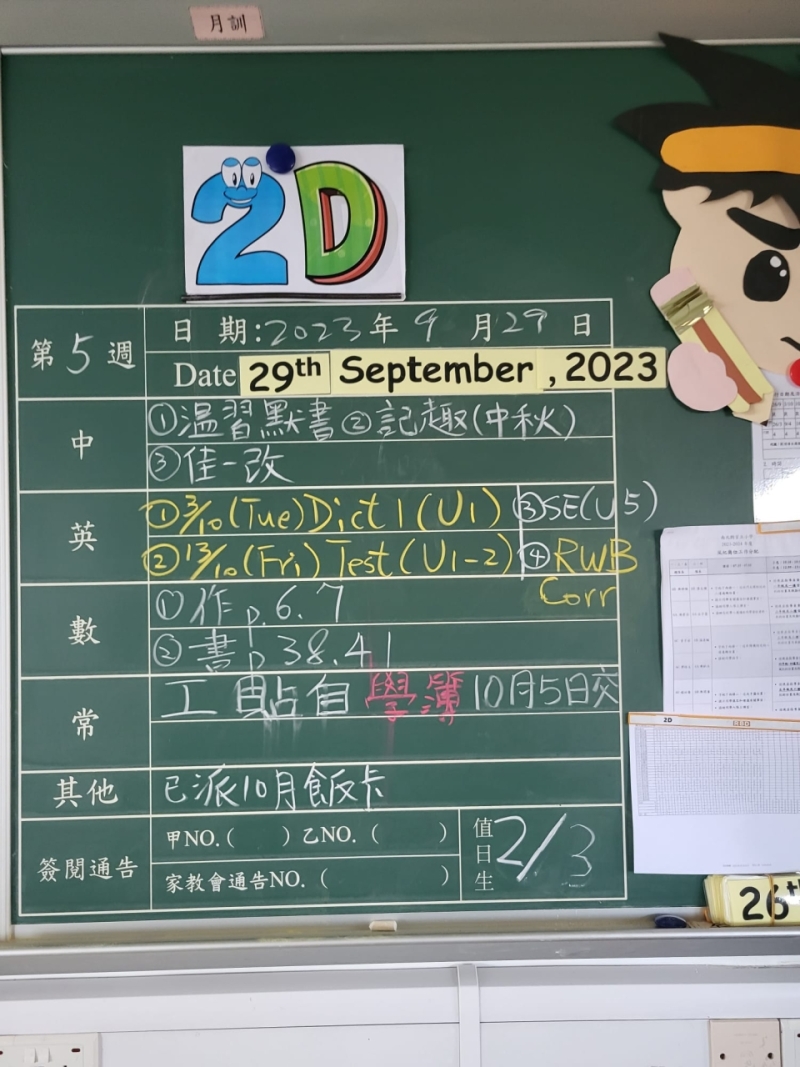 月訓
2D
第5週
日 期:2023年 9 月29 日
Date 29th September , 2023
中
①溫習默書 ②記趣(中秋)
③佳一改
英
①3/10(Tue)Dict 1(U1) ③SE(U5)
②13/10(Fri)Test(U1-2) ④RWB
Corr
數
①作p.6.7
②書p38.41
常
工 貼自學簿 10月5日交
其他
已派10月飯卡
簽閱通告
甲NO.( )乙NO.( )
家教會通告NO.( )
值日生
2/3
2D
26th